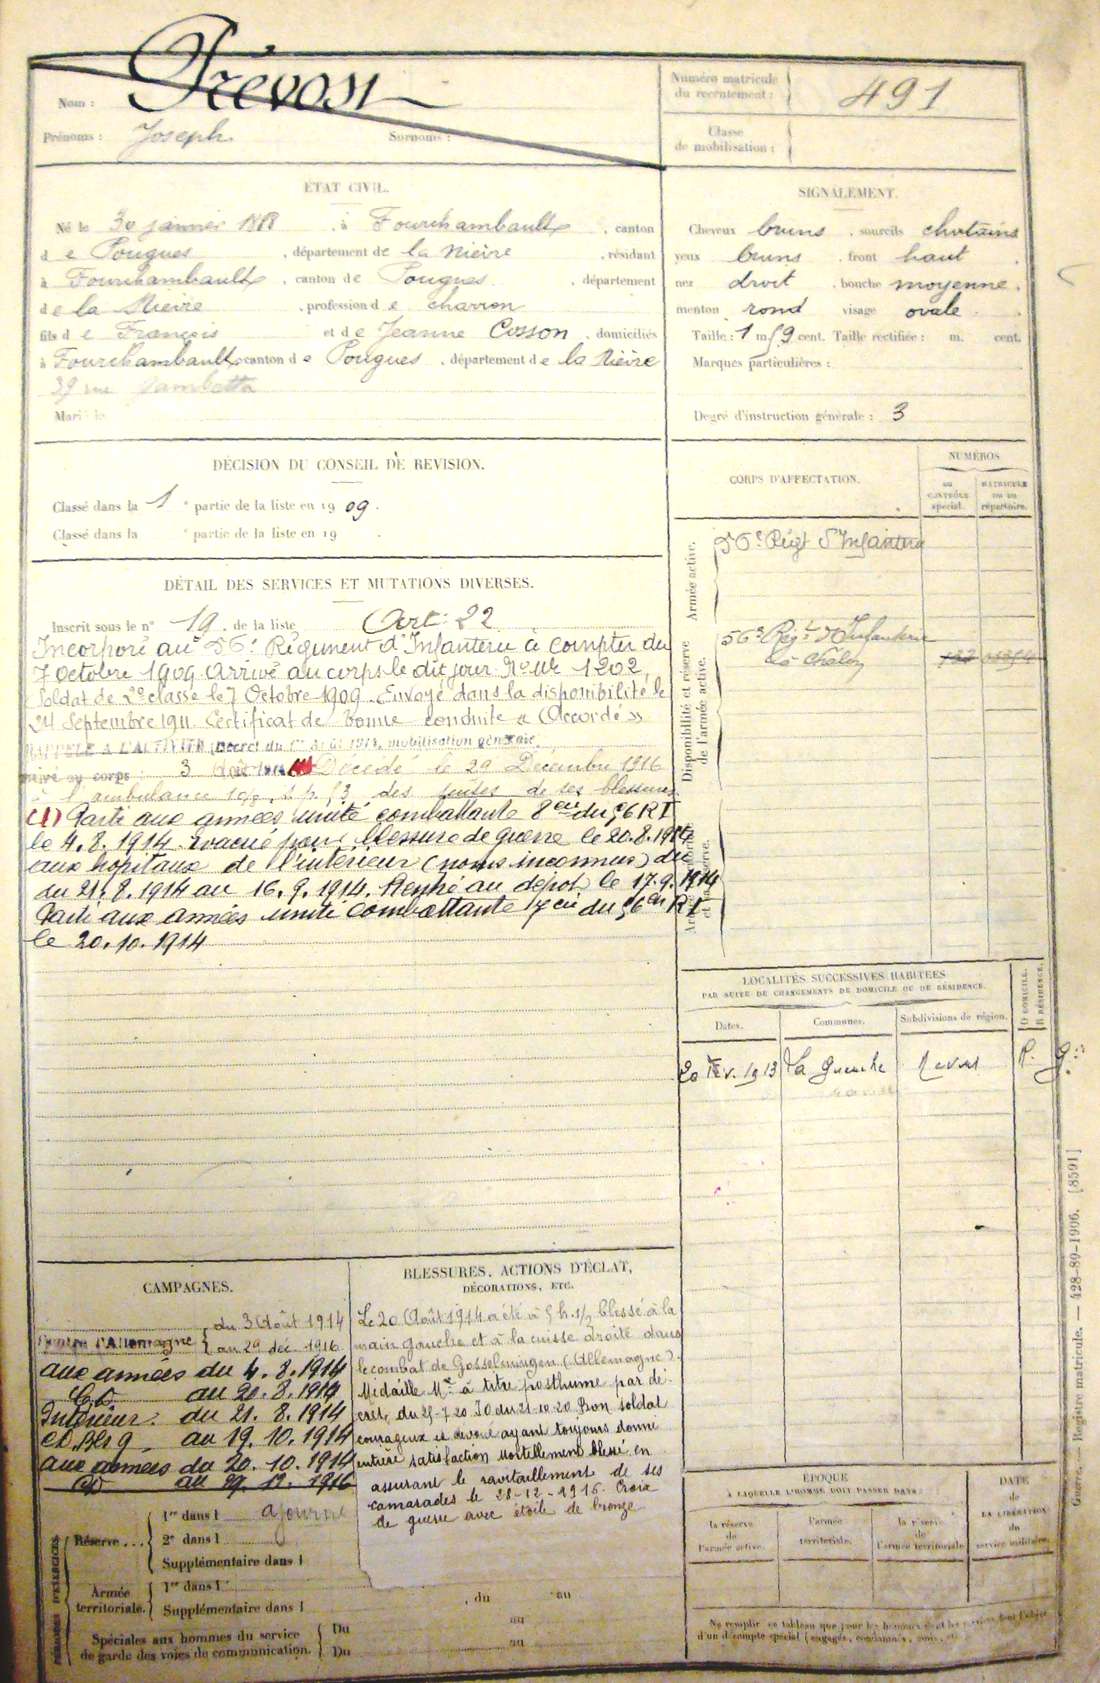 Nom : Prévost
Prénoms : Joseph Surnoms :
Numéro matricule
du recrutement : 491
Classe
de mobilisation :
ÉTAT CIVIL.
Né le 30 janvier 1888, à Fourchambault, canton
de Pougues, département de la Nièvre, résidant
à Fourchambault, canton de Pougues, département
de la Nièvre, profession de charron
fils de François et de Jeanne Cosson, domiciliés
à Fourchambault canton de Pougues, département de la Nièvre
39 rue Gambetta
Marié à
SIGNALEMENT.
Cheveux bruns, sourcils chatains
yeux bruns, front haut
nez droit, bouche moyenne,
menton rond visage ovale
Taille : 1 m 59 cent. Taille rectifiée : m. cent.
Marques particulières :
Degré d'instruction générale : 3
DÉCISION DU CONSEIL DE REVISION.
Classé dans la 1e partie de la liste en 1909.
Classé dans la e partie de la liste en 19 .
CORPS D'AFFECTATION.
NUMÉROS
AU CONTRÔLE spécial.
MATRICULE OU DU répertoire.
Armée active.
56e Régt d'Infanterie
Disponibilité et réserve
de l'armée active.
56e Régt d'Infanterie
à Châlon
DÉTAIL DES SERVICES ET MUTATIONS DIVERSES.
Inscrit sous le n° 19 de la liste Art: 22
Incorporé au 56e Régiment d'Infanterie à compter du
7 Octobre 1909 Arrivé au corps le dit jour. No Mle 1202,
Soldat de 2e classe le 7 Octobre 1909. Envoyé dans la disponibilité le
24 Septembre 1911 Certificat de bonne conduite « Accordé »
RAPPELÉ A L'ACTIVITÉ (Décret du 1er Août 1914, mobilisation générale.
Arrivé au corps : 3 Août 1914 (1) Décédé le 29 Décembre 1916
à l'ambulance s.p. 53 des suites de ses blessures
(1) Parti aux armées unité combattante 8e Cie du 56 RI
le 4.8.1914. Evacué pour blessure de guerre le 20.8.1914
aux hopitaux de l'intérieur (noms inconnus) du
du 21.8.1914 au 16.9.1914. Rentré au dépot le 17.9.1914
Parti aux armées unité combattante 7 cie du 56e RI
le 20.10.1914
LOCALITÉS SUCCESSIVES HABITÉES
PAR SUITE DE CHANGEMENTS DE DOMICILE OU DE RÉSIDENCE.
D DOMICILE.
R RÉSIDENCE.
Dates. Communes. Subdivisions de région.
20 Fév. 1913 La Guerche Nevers R.
CAMPAGNES.
Contre l'Allemagne { du 3 Août 1914
au 29 déc 1916
aux armées du 4.8.1914
CD au 20.8.1914
Intérieur. du 21.8.1914
CD. Bles g. au 19.10.1914
aux armées du 20.10.1914
CD au 29.12.1916
BLESSURES, ACTIONS D'ÉCLAT,
DÉCORATIONS, ETC.
Le 20 Août 1914 a été à 5 h. 1/2 blessé à la
main gauche et à la cuisse droite dans
le combat de Gosselmingen (Allemagne).
Médaille Mre à titre posthume par dé-
cret, du 25-7-20 JO du 21-10-20 Bon soldat
courageux et dévoué ayant toujours donné
entière satisfaction Mortellement blessé en
assurant le ravitaillement de ses
camarades le 28-12-1916 Croix
de guerre avec étoile de bronze
PÉRIODES D'EXERCICES
Réserve ... 1re dans l ajourné
2e dans l
Supplémentaire dans l
Armée
territoriale. 1re dans l
Supplémentaire dans l , du au
Spéciales aux hommes du service
de garde des voies de communication. Du au
Du au
ÉPOQUE
À LAQUELLE L'HOMME DOIT PASSER DANS :
la réserve
de
l'armée active.
l'armée
territoriale.
la réserve
de
l'armée territoriale.
DATE
de
LA LIBÉRATION
du
service militaire.
Ne remplir ce tableau que pour les hommes
d'un décompte spécial (engagés, condamnés,
Guerre. — Registre matricule. — 428-89-1906. [8591]